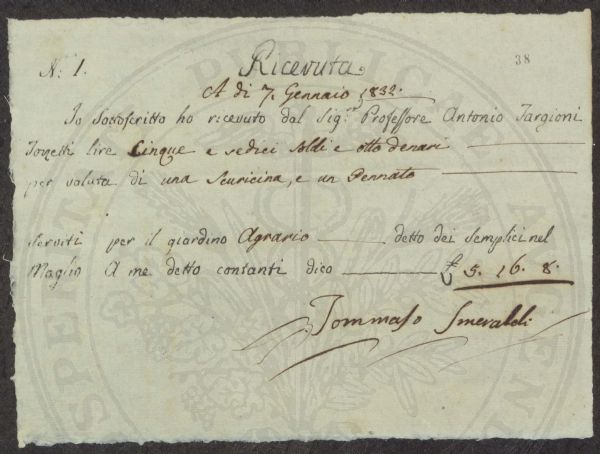 N: 1.
Ricevuta
38
A di 7. Gennaio 1832.
Io Sottoscritto ho ricevuto dal Sig.r Professore Antonio Targioni
Tozzetti lire Cinque e sedici soldi e otto denari
per valuta di una Scuricina, e un Pennato
serviti per il giardino Agrario detto dei Semplici nel
Maglio A me detto contanti dico £ 5. 16. 8.
Tommaso Smeraldi